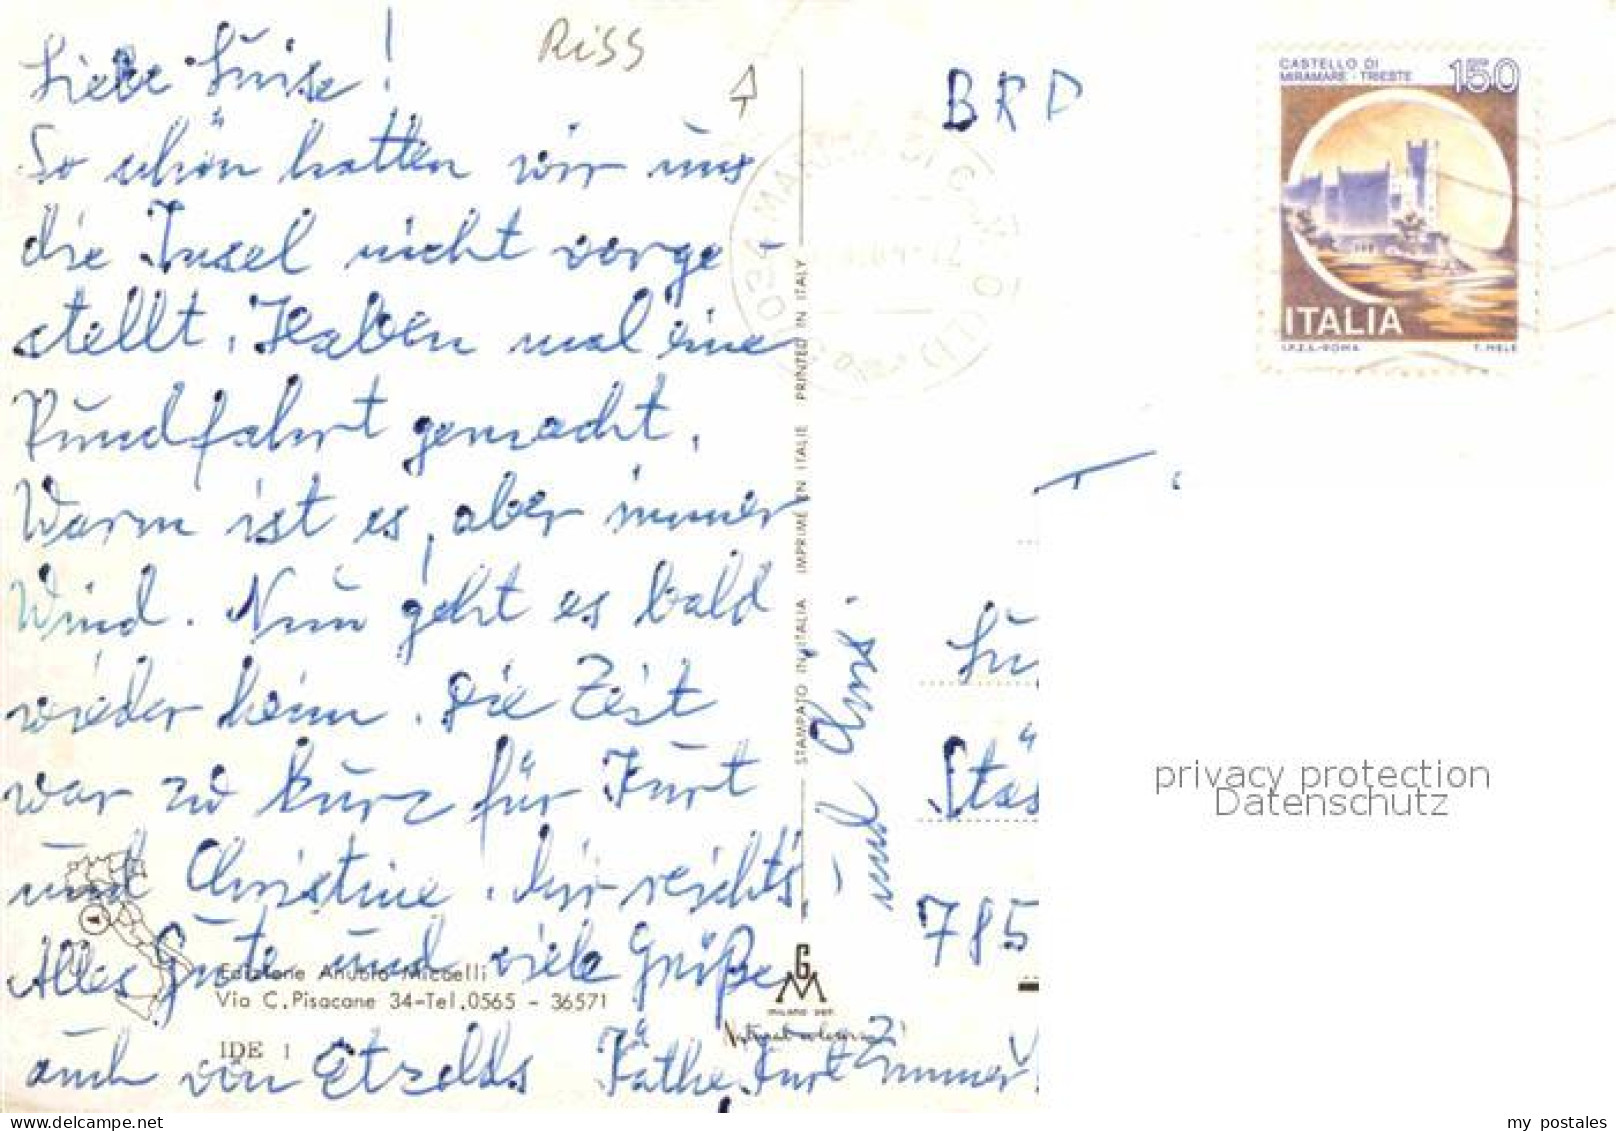 Riss
Liebe Luise!
So schön hatten wir uns
die Insel nicht vorge-
stellt. Haben mal eine
Rundfahrt gemacht.
Warm ist es, aber immer
Wind. Nun geht es bald
wieder heim. Die Zeit
war zu kurz für Kurt
und Christine. Mir reichts.
Alles Gute und viele Grüße
auch von Etzolds Käthe, Kurt Zimmer
und Chris.
Edizione Anuolo Miceelli
Via C. Pisacane 34-Tel. 0565 - 36571
IDE 1
STAMPATO IN ITALIA IMPRIMÉ EN ITALIE PRINTED IN ITALY
GM
MILANO DEP.
BRD
CASTELLO DI
MIRAMARE - TRIESTE
150
ITALIA
I.P.Z.S.-ROMA T. MELE
Lu
Stä
785
privacy protection
Datenschutz
my postales